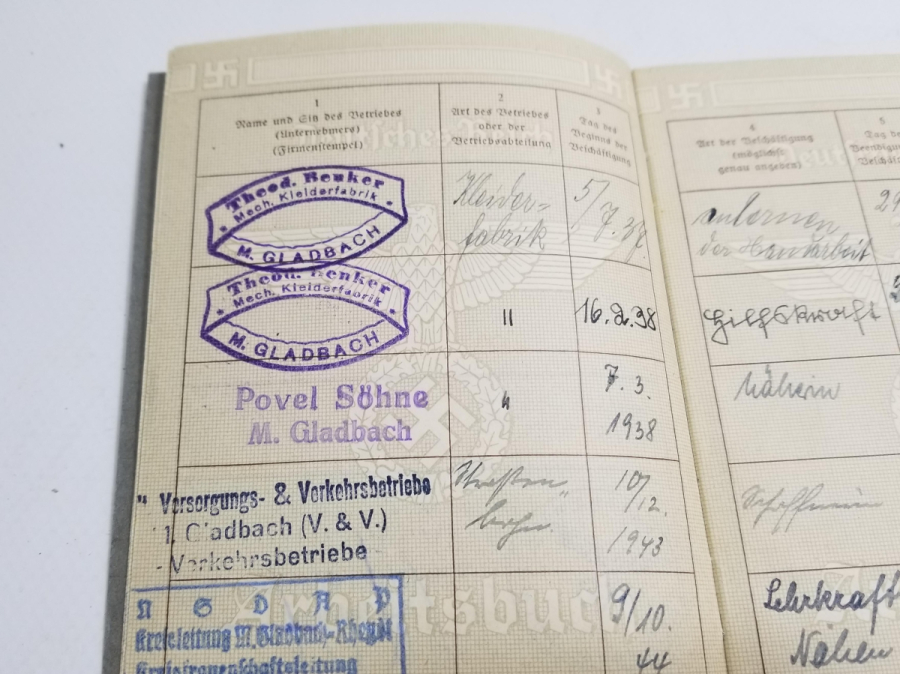 1
Name und Sitz des Betriebes
(Unternehmers)
(Firmenstempel)
2
Art des Betriebes
oder der
Betriebsabteilung
3
Tag des
Beginns der
Beschäftigung
4
Art der Beschäftigung
(möglichst
genau angeben)
5
Tag der
Theod. Benker
Mech. Kleiderfabrik
M. GLADBACH
Kleider=
fabrik
5/
7. 37.
der Handarbeit
29
Theod. Benker
Mech. Kleiderfabrik
M. GLADBACH
"
16.2.38
Hilfskraft
Povel Söhne
M. Gladbach
"
7. 3.
1938
Näherin
" Versorgungs- & Verkehrsbetriebe
Gladbach (V. & V.)
- Verkehrsbetriebe -
Straßen
bahn.
10/
12.
1943
Schaffnerin
NSDAP
Kreisleitung M.Gladbach-Rheydt
Kreisfrauenschaftsleitung
9/10.
44
Lehrkraft
Nähen
Arbeitsbuch